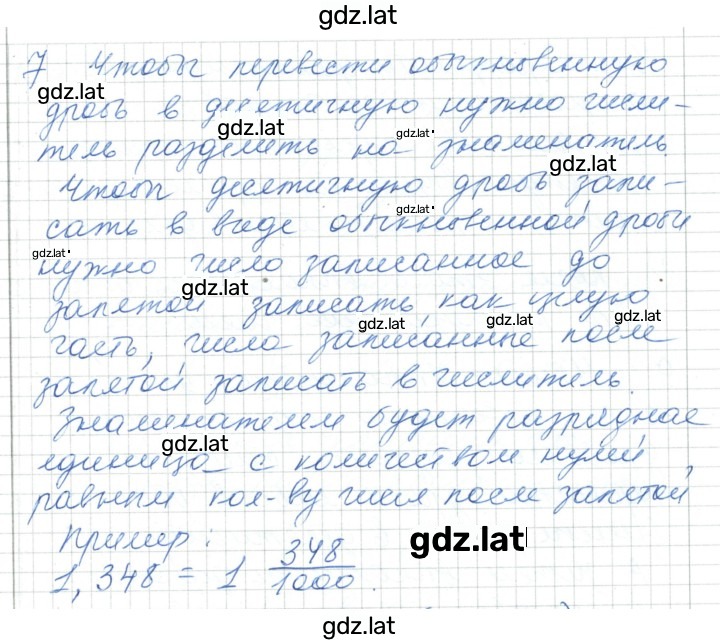 gdz.lat
7 Чтобы перевести обыкновенную
gdz.lat
дробь в десятичную нужно числи-
gdz.lat
gdz.lat
тель разделить на знаменатель.
gdz.lat
Чтобы десятичную дробь запи-
gdz.lat
сать в виде обыкновенной дроби
gdz.lat
нужно число записанное до
gdz.lat
запятой записать, как целую
gdz.lat
gdz.lat
gdz.lat
часть, число записанные после
запятой записать в числитель.
Знаменателем будет разрядная
gdz.lat
единица с количеством нулей,
равным кол-ву чисел после запятой
Пример:
gdz.lat
1,348 = 1 348/1000.
gdz.lat